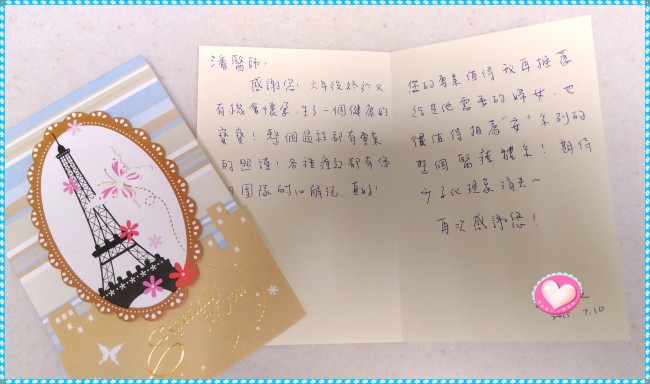 潘醫師:
感謝您! 六年後終於又
有機會懷孕,生了一個健康的
寶寶! 整個過程都有專業
的照護! 各種療程都有您
團隊的心解說,真好!
您的專業值得我再推薦
給其他需要的婦女,也
很值得推薦"安"系列的
整個醫療體系! 期待
少子化現象消失~
再次感謝您!
7.10